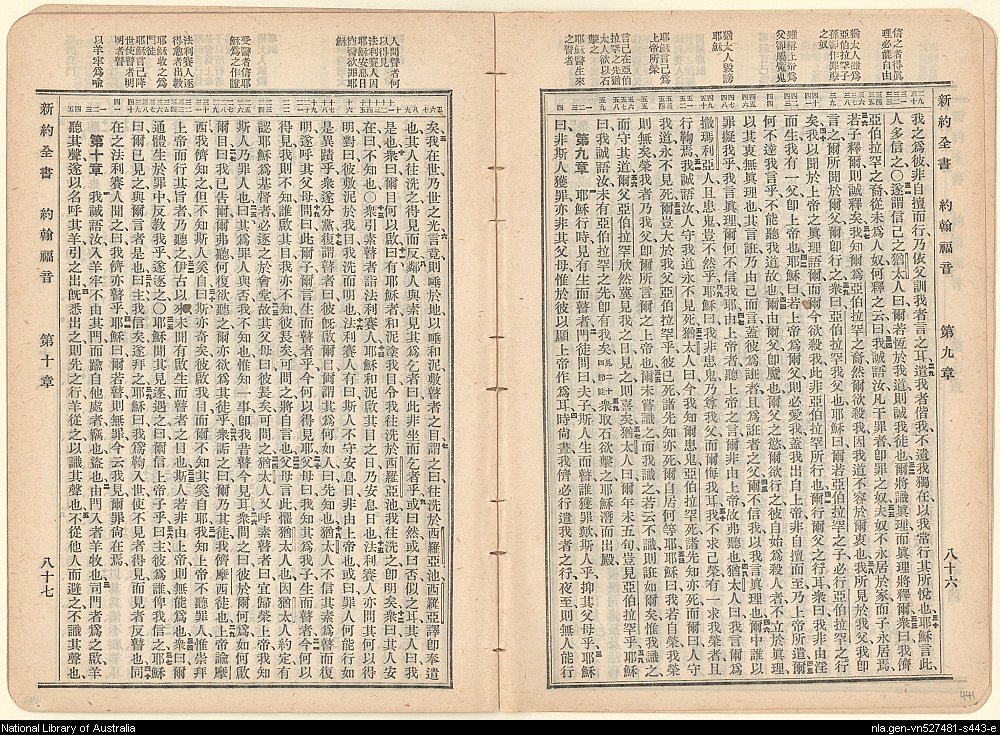 新約全書 約翰福音 第九章 八十六
信之者得眞
理必能自由
猶太人雖爲
亞伯拉罕子
孫卻作罪奴
之奴
雖稱上帝爲
父卻屬魔鬼
猶太人毀謗
耶穌
耶穌言己爲
上帝所榮
言己在亞伯
拉罕之先猶
太人欲以石
擊之
耶穌醫生來
之瞽者
我之爲彼、非自擅而行、乃依父訓我者言之耳、遣我者偕我、不遺我獨在、以我常行其所悅也、耶穌言此、
人多信之、〇遂謂信己之猶太人曰、爾若恆於我道、則誠我徒也、爾將識眞理、而眞理將釋爾、衆曰、我儕
亞伯拉罕之裔、從未爲人奴、何釋之云、曰、我誠語汝、凡干罪者、卽罪之奴、夫奴不永居於家、而子永居焉、
若子釋爾、則誠釋矣、我知爾爲亞伯拉罕之裔、然爾欲殺我、因我道不容於爾衷也、我所見於我父者、我
言之、爾所聞於爾父者、爾行之、衆曰、亞伯拉罕我父也、耶穌曰、爾若亞伯拉罕之子、必行亞伯拉罕之行
矣、我以所聞於上帝之眞理語爾、而爾今欲殺我、此非亞伯拉罕所行也、爾行爾父之行耳、衆曰、我非由淫
而生、我有一父、卽上帝也、耶穌曰、若上帝爲爾父、則必愛我、蓋我出自上帝、非自擅而至、乃上帝所遣、爾
何不達我言乎、不能聽我道故也、爾由爾父卽魔也、爾父之慾、爾欲行之、彼自始爲殺人者、不立於眞理、
以其衷無眞理也、其言誑、乃由己而言、蓋彼爲誑者、且爲誑者之父、爾不信我、以我言眞理也、爾中誰以
罪擬我乎、我言眞理、爾何不信我耶、由上帝者、聽上帝之言、爾非由上帝、故弗聽也、猶太人曰、我言爾爲
撒瑪利亞人、且患鬼、豈不然乎、耶穌曰、我非患鬼、乃尊我父、而爾侮我耳、我不求己榮、有一求我榮者、且
行鞫焉、我誠語汝、人守我道、永不見死、猶太人曰、今我知爾患鬼、亞伯拉罕死、諸先知亦死、而爾曰、人守
我道、永不見死、爾大於我父亞伯拉罕乎、彼已死、諸先知亦死、爾自居何等、耶穌曰、我若自榮、我榮
則無矣、榮我者乃我父、卽爾所言爾之上帝也、爾未嘗識之、而我識之、若云不識、則誑如爾矣、惟我識之、
而守其道、爾父亞伯拉罕欣然冀見我之日、見則喜矣、猶太人曰、爾年未五旬、豈見亞伯拉罕乎、耶穌
曰、我誠語汝、未有亞伯拉罕之先、卽有我矣、衆取石欲擊之、耶穌潛而出殿、
第九章 耶穌行時、見有生而瞽者、門徒問曰、夫子、斯人生而瞽、誰獲罪歟、斯人乎、抑其父母乎、耶穌
曰、非斯人獲罪、亦非其父母、惟於彼以顯上帝作爲耳、時尙晝、我儕必行遣我者之行、夜至則無人能行
新約全書 約翰福音 第十章 八十七
人問瞽者何
以得見
法利賽人因
耶穌安息日
醫瞽欲罪耶
穌
受醫者信耶
穌爲之作證
法利賽人逐
得愈者出教
耶穌收之爲
門徒
耶穌言己降
世使瞽者明
明者瞽
以羊牢爲喩
矣、我在世、乃世之光、言竟、則唾於地、以唾和泥、敷瞽者之目、謂之曰、往洗於西羅亞池、西羅亞譯卽奉遣
也、其人往洗之、得見而反、鄰人與素見其爲乞者曰、此非坐而乞者乎、或曰然、或曰否、似之耳、其人曰、我
是也、衆曰、爾目何以啟乎、曰、有耶穌者、和泥塗我目、令我往洗於西羅亞池、我往洗之、卽明矣、衆曰、其人安
在、曰、不知也、〇衆引素瞽者詣法利賽人、耶穌和泥啟其目之日、乃安息日也、法利賽人亦問其何以得
明、對曰、彼敷泥於我目、我洗而明也、法利賽人有曰、斯人不守安息日、非由上帝也、或曰、罪人何能行如
是異蹟乎、衆遂分黨、復謂瞽者曰、彼旣啟爾目、爾謂其爲何如人、曰、先知也、猶太人不信其素爲瞽而復
明、遂呼其父母、問曰、此爾子、爾言生而瞽者乎、今何以得見耶、父母曰、我知其爲我子、生而瞽者、今何以
得見、我則不知、誰啟其目、我亦不知、彼長矣、可問之、將自言也、父母言此、懼猶太人也、因猶太人約定、有
認耶穌爲基督者、必逐之於會堂、故其父母曰、彼長矣、可問之、猶太人又呼素瞽者曰、宜歸榮上帝、我知
斯人乃罪人也、曰、其爲罪人與否、我不知也、惟知一事、卽我昔瞽今見耳、衆問之曰、彼於爾何爲、如何啟
爾目、曰、我已告爾、爾弗聽、何復欲聽之、爾亦欲爲其徒乎、衆詬之曰、爾乃其徒、我儕摩西徒也、上帝諭摩
西、我儕知之、但不知斯人奚自、曰、斯亦奇矣、彼啟我目、而爾不知其奚自耶、我知上帝不聽罪人、惟崇拜
上帝而行其旨者、乃聽之、伊古以來、未聞有啟生而瞽者之目也、斯人若非由上帝、則無能爲也、衆曰、爾
通體生於罪中、反敎我乎、遂逐之、〇耶穌聞其見逐、遇之曰、爾信上帝子乎、曰、主、彼爲誰、俾我信之、耶穌
曰、爾已見之、與爾言者是也、曰、主、我信矣、遂拜之、耶穌曰、我爲鞫入世、使不見者得見、而見者反瞽也、同
在之法利賽人聞之、曰、我儕亦瞽乎、耶穌曰、爾若瞽則無罪、今云我見、爾罪尙在焉、
第十章 我誠語汝、入羊牢、不由其門、而踰自他處者、竊也盜也、由門入者、羊牧也、司門者爲之啟、羊
聽其聲、遂以名呼其羊、引之出、旣悉出之、則先之行、羊從之、以識其聲也、不從他人而避之、不識其聲也、
441
National Library of Australia
nla.gen-vn527481-s443-e